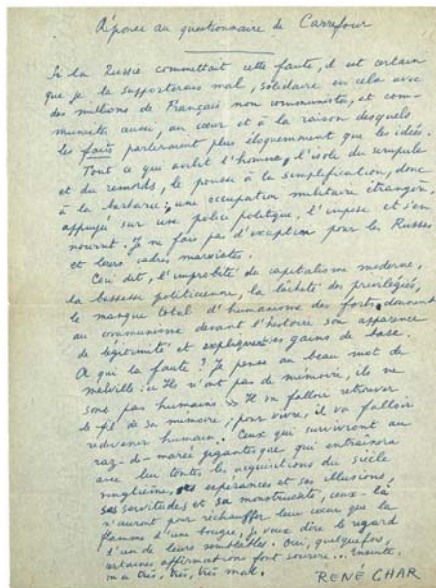 Réponse au questionnaire de Carrefour
Si la Russie commettait cette faute, il est certain
que je la supporterais mal, solidaire en cela avec
des millions de Français non communistes, et com-
munistes aussi, au cœur et à la raison desquels
les faits parleraient plus éloquemment que les idées.
Tout ce qui avilit l'homme, l'isole du scrupule
et du remords, le pousse à la simplification, donc
à la barbarie ; une occupation militaire étrangère,
appuyée sur une police politique, l'impose et s'en
nourrit. Je ne fais pas d'exception pour les Russes
et leurs cadres marxistes.
Ceci dit, l'improbité du capitalisme moderne,
la bassesse politicienne, la lâcheté des privilégiés,
le manque total d'humanisme des forts, donnent
au communisme devant l'histoire son apparence
de légitimité et expliquent ses gains de base.
À qui la faute ? Je pense au beau mot de
Melville : « Ils n'ont pas de mémoire, ils ne
sont pas humains ». Il va falloir retrouver
le fil de sa mémoire ; pour vivre, il va falloir
redevenir humain. Ceux qui survivront au
raz-de-marée gigantesque qui entraînera
avec lui toutes les acquisitions du siècle
vingtième, ses espérances et ses illusions,
ses servitudes et sa monstruosité, ceux-là
n'auront pour réchauffer leur cœur que la
flamme d'une bougie, je veux dire le regard
d'un de leurs semblables. Oui, quelquefois,
certaines affirmations font sourire... Ensuite
on a très, très, très mal.
RENÉ CHAR